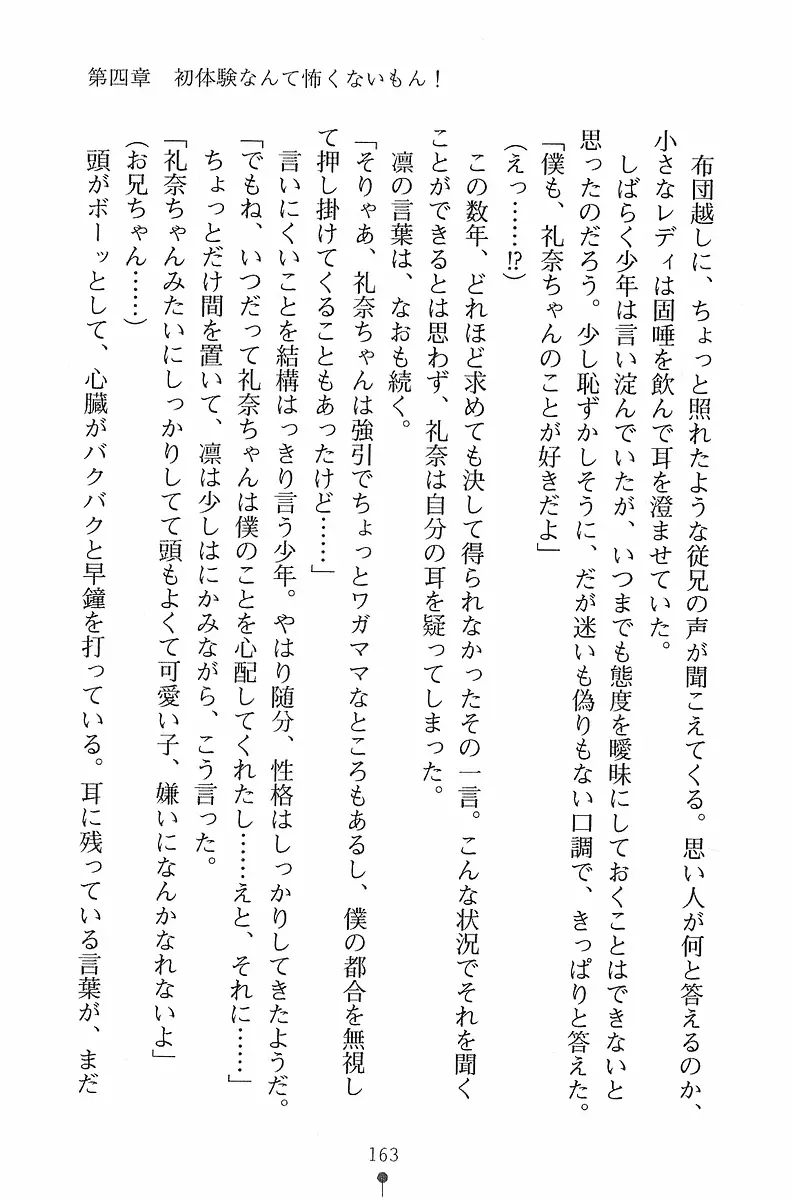 第四章　初体験なんて怖くないもん！
布団越しに、ちょっと照れたような従兄の声が聞こえてくる。思い人が何と答えるのか、
小さなレディは固唾を飲んで耳を澄ませていた。
しばらく少年は言い淀んでいたが、いつまでも態度を曖昧にしておくことはできないと
思ったのだろう。少し恥ずかしそうに、だが迷いも偽りもない口調で、きっぱりと答えた。
「僕も、礼奈ちゃんのことが好きだよ」
（えっ……!?）
この数年、どれほど求めても決して得られなかったその一言。こんな状況でそれを聞く
ことができるとは思わず、礼奈は自分の耳を疑ってしまった。
凛の言葉は、なおも続く。
「そりゃあ、礼奈ちゃんは強引でちょっとワガママなところもあるし、僕の都合を無視し
て押し掛けてくることもあったけど……」
言いにくいことを結構はっきり言う少年。やはり随分、性格はしっかりしてきたようだ。
「でもね、いつだって礼奈ちゃんは僕のことを心配してくれたし……えと、それに……」
ちょっとだけ間を置いて、凛は少しはにかみながら、こう言った。
「礼奈ちゃんみたいにしっかりしてて頭もよくて可愛い子、嫌いになんかなれないよ」
（お兄ちゃん……）
頭がボーッとして、心臓がバクバクと早鐘を打っている。耳に残っている言葉が、まだ
163